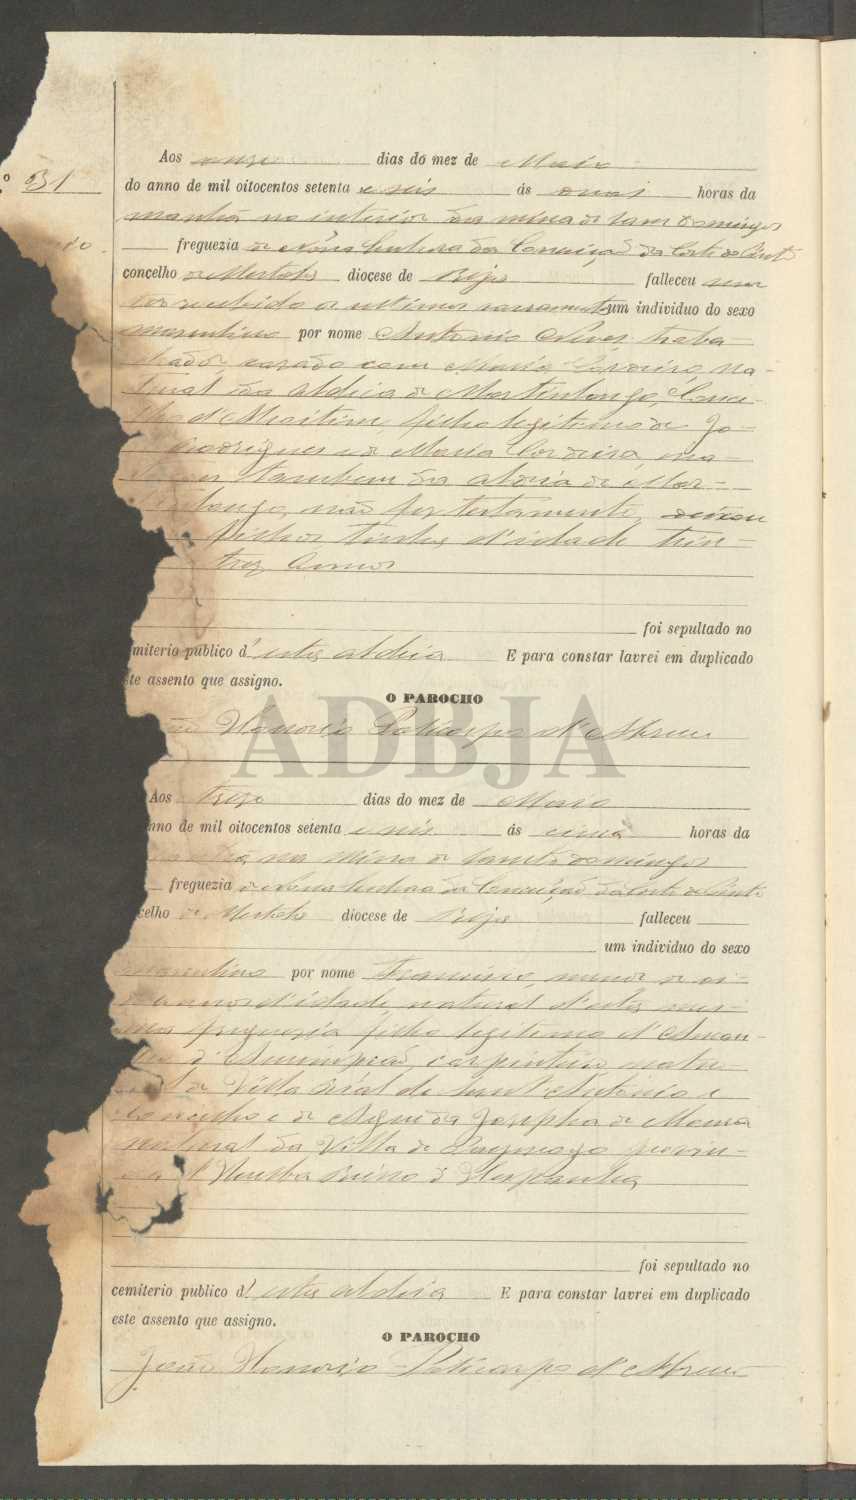 Aos onze dias do mez de Maio
º 31
do anno de mil oitocentos setenta e seis ás duas horas da
manhã no interior da mina de Sam Domingos
freguezia de Nossa Senhora da Conceição da Corte do Pinto
concelho de Mertola diocese de Beja falleceu sem
ter recebido os ultimos sacramentos um individuo do sexo
masculino por nome Antonio Neves, traba-
lhador, casado com Maria Cordeira, na-
tural da Aldeia de Martinlongo, Conce-
lho d'Alcoitim, filho legitimo de Jo-
Rodrigues e de Maria Cordeira, na-
tambem da aldeia de Mar-
longo, não fez testamento, deixou
filhos tinha d'idade trin-
trez Annos
foi sepultado no
miterio publico d' esta aldeia E para constar lavrei em duplicado
ste assento que assigno.
O PAROCHO
João Honorio Policarpo d'Abreu
ADBJA
Aos treze dias do mez de Maio
nno de mil oitocentos setenta e seis ás cinco horas da
na Mina de Sam Domingos
freguezia de Nossa Senhora da Conceição da Corte do Pinto
celho de Mertola diocese de Beja falleceu
um individuo do sexo
masculino por nome Francisco, menor de
annos d'idade, natural d'esta mes-
ma freguezia filho legitimo d'
d'Assumpção, carpinteiro, natu-
de Villa Real de Santo Antonio e
Concelho e de Josepha de
natural da Villa de provin-
cia d'Huelba Reino d'Hespanha
foi sepultado no
cemiterio publico d' esta aldeia E para constar lavrei em duplicado
este assento que assigno.
O PAROCHO
João Honorio Policarpo d'Abreu